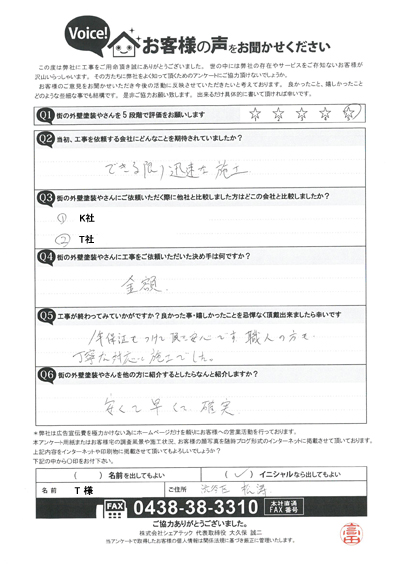 Voice!
お客様の声をお聞かせください
この度は弊社に工事をご用命頂き誠にありがとうございました。世の中には弊社の存在やサービスをご存知ないお客様が
沢山いらっしゃいます。その方たちに弊社をよく知って頂くためのアンケートにご協力頂けないでしょうか。
お客様のご意見をお聞かせいただき今後の活動に反映させていただきたいと考えております。良かったこと、嬉しかったこと
どのような些細な事でも結構です。是非ご協力お願い致します。出来るだけ具体的に書いて頂ければ幸いです。
Q1 街の外壁塗装やさんを5段階で評価をお願いします ☆ ☆ ☆ ☆ ☆
Q2 当初、工事を依頼する会社にどんなことを期待されていましたか?
できる限り迅速な施工
Q3 街の外壁塗装やさんにご依頼いただく際に他社と比較しました方はどこの会社と比較しましたか?
① K社
② T社
Q4 街の外壁塗装やさんに工事をご依頼いただいた決め手は何ですか?
金額
Q5 工事が終わってみていかがですか?良かった事・嬉しかったことを忌憚なく頂戴出来ましたら幸いです
年保証もつけて 安心です 職人の方も
丁寧な対応と施工でした。
Q6 街の外壁塗装やさんを他の方に紹介するとしたらなんと紹介しますか?
安くて早くて確実
*弊社は広告宣伝費を極力かけない為にホームページだけを頼りにお客様への営業活動を行っております。
本アンケート用紙またはお客様宅の調査風景や施工状況、お客様の顔写真を随時ブログ形式のインターネットに掲載させて頂いております。
上記内容をインターネットや印刷物に掲載させて頂いてもよろしいでしょうか?
下記の中から〇印をお付下さい。
( ) 名前を出してもよい (✓) イニシャルなら出してもよい
名前 T 様 ご住所
FAX 0438-38-3310 本社直通 FAX番号
ご協力ありがとうございました。
株式会社シェアテック 代表取締役 大久保 誠二
当アンケートで取得したお客様の個人情報は関係法規に基づき厳正に管理いたします。